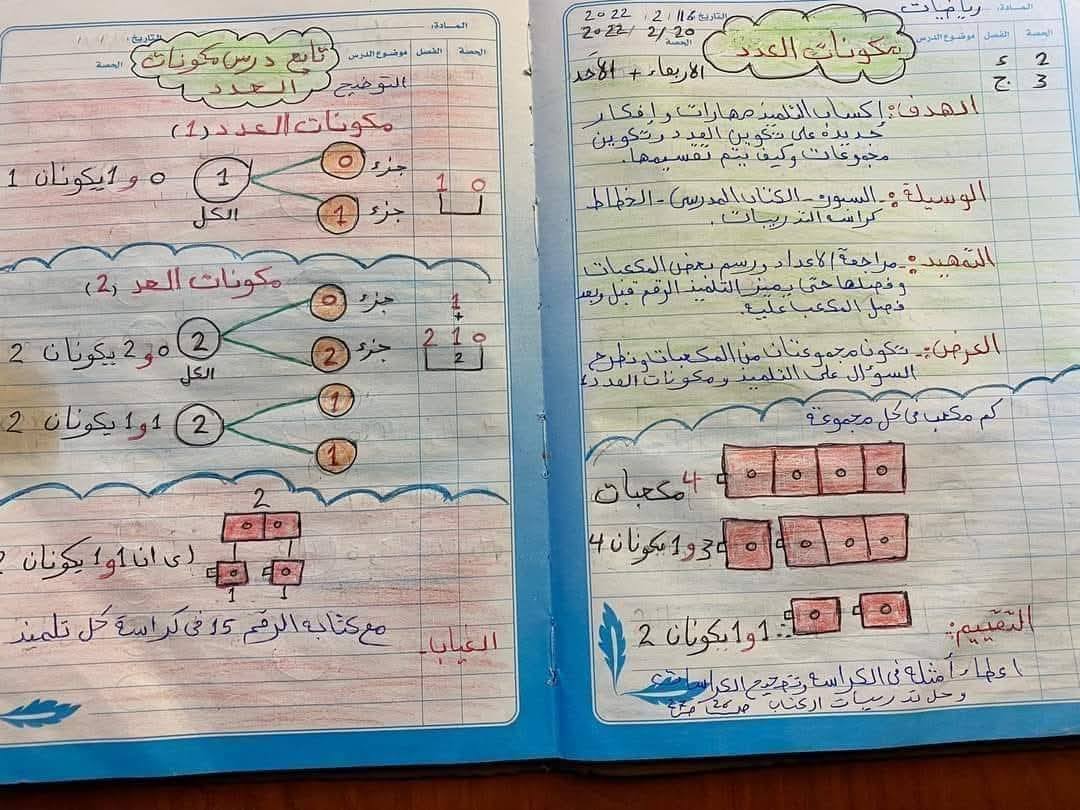 المادة: رياضيات
التاريخ: 2022/2/16
2022/2/20
الحصة الفصل موضوع الدرس مكونات العدد الحصة
2 ء
3 ج
الاربعاء + الأحد
الهدف: إكساب التلميذ مهارات وإفكار
جديدة على تكوين العدد وتكوين
مجموعات وكيف يتم تقسيمها.
الوسيلة:- السبورة - الكتاب المدرسى - الخطاط
كراسة التدريبات.
التمهيد:- مراجعة الاعداد ورسم بعض المكعبات
وفصلها حتى يميز التلميذ الرقم قبل وبعد
فصل المكعب عليه.
العرض:- تكون مجموعتان من المكعبات ونطرح
السؤال على التلميذ ومكونات العدد
كم مكعب فى كل مجموعة
4 مكعبات
3 و 1 يكونان 4
1 و 1 يكونان 2
التقييم:
اعطاء أمثلة فى الكراسة وتصحيح الكراسات
وحل تدريبات الكتاب
المادة:
التاريخ: / /
الحصة الفصل موضوع الدرس تابع درس مكونات الحصة
العدد
التوضيح
مكونات العدد (1)
0 جزء
1 0
1
0 و 1 يكونان 1
الكل
1 جزء
مكونات العد (2)
0 جزء
1
+
2 1 0
2
2
0 و 2 يكونان 2
الكل
2 جزء
1
2
1 و 1 يكونان 2
1
2
اى ان 1 و 1 يكونان 2
1 1
مع كتابه الرقم 15 فى كراسة كل تلميذ
الغياب-